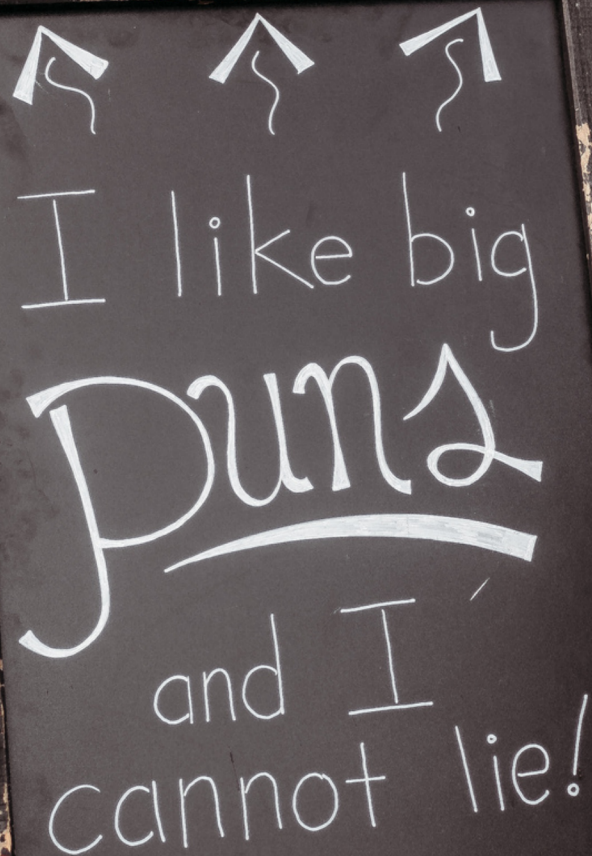 I like big
puns
and I
cannot lie!